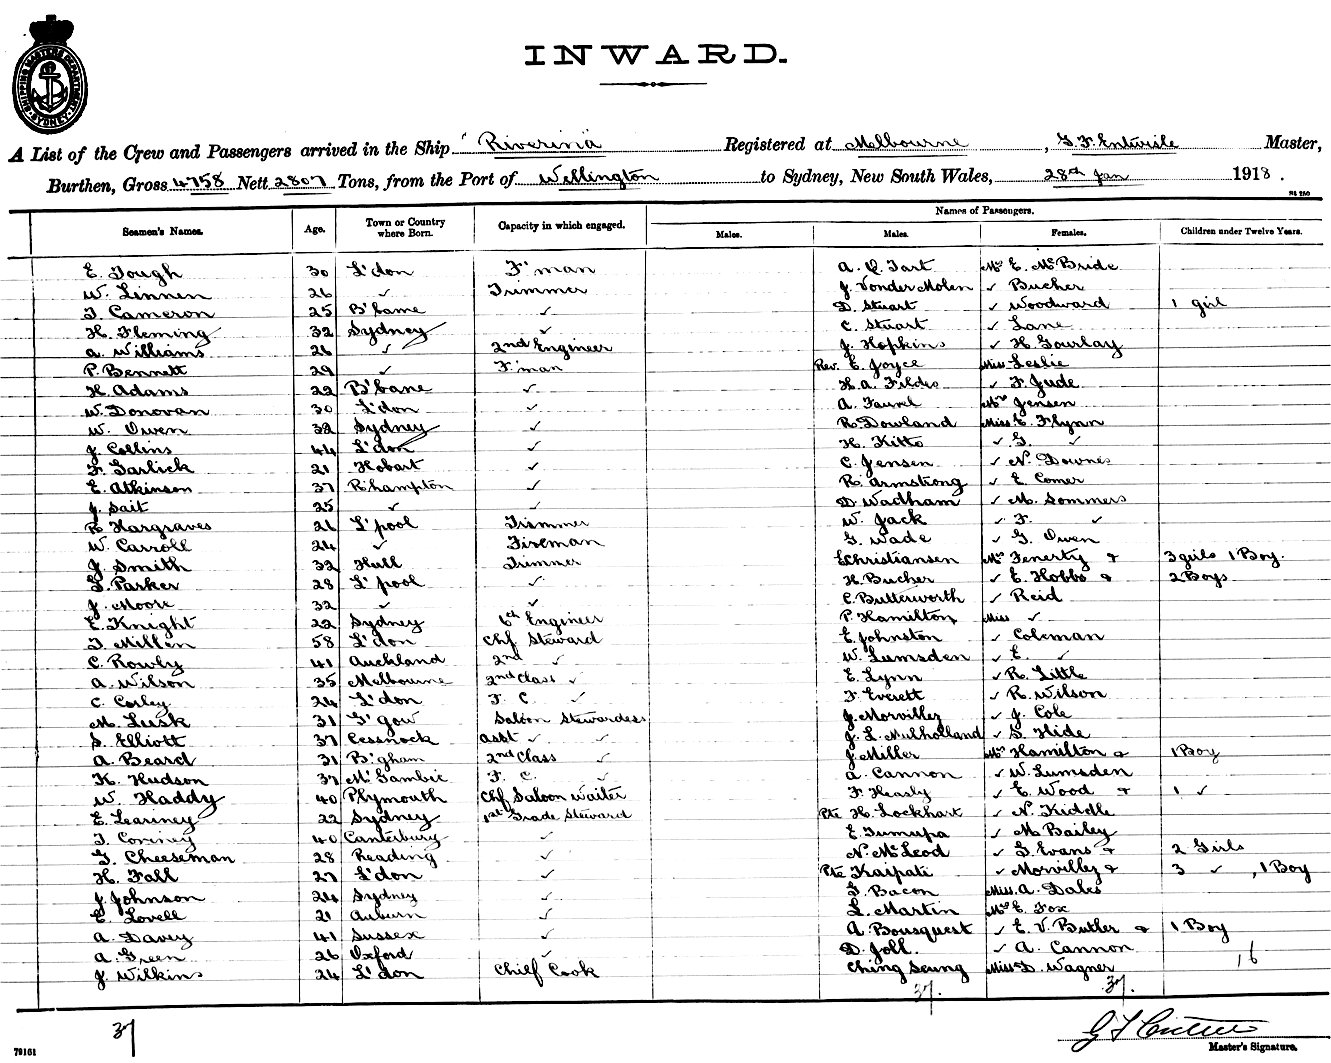 SHIPPING MASTERS DEPARTMENT SYDNEY
INWARD.
A List of the Crew and Passengers arrived in the Ship "Riverina" Registered at Melbourne, G. F. Entwisle Master,
Burthen, Gross 4758 Nett 2807 Tons, from the Port of Wellington to Sydney, New South Wales, 28th Jan 1918.
Names of Passengers.
Seamen's Names. Age. Town or Country where Born. Capacity in which engaged. Males. Males. Females. Children under Twelve Years.
E. Tough 30 L'don F'man A. O. Tart Mrs E. McBride
W. Linnen 26 ✓ Trimmer J. VonderMolen ✓ Bucher
T. Cameron 25 B'bane ✓ D. Stuart ✓ Woodward 1 girl
H. Fleming 32 Sydney ✓ C. Stuart ✓ Lane
A. Williams 26 ✓ 2nd Engineer J. Hopkins ✓ H. Gourlay
P. Bennett 29 ✓ F'man Rev. E. Joyce Miss Leslie
H. Adams 22 B'bane ✓ H. A. Fildes ✓ F. Jude
W. Donovan 30 L'don ✓ A. Faurel Mrs Jensen
W. Owen 32 Sydney ✓ R. Dowland Miss E. Flynn
J. Collins 44 L'don ✓ H. Kitto ✓ G. ✓
F. Garlick 21 Hobart ✓ C. Jensen ✓ N. Downes
E. Atkinson 37 R'hampton ✓ R. Armstrong ✓ E. Comer
J. Sait 25 ✓ ✓ D. Wadham ✓ M. Sommers
R. Hargraves 26 L'pool Trimmer W. Jack ✓ F. ✓
W. Carroll 24 ✓ Fireman G. Wade ✓ G. Owen
J. Smith 32 Hull Trimmer E Christiansen Mrs Fenerty & 3 girls 1 Boy.
G. Parker 28 L'pool ✓ H. Bucher ✓ E. Hobbs & 2 Boys
J. Moore 32 ✓ ✓ C. Butterworth ✓ Reid
E. Knight 22 Sydney 6th Engineer P. Hamilton Miss ✓
T. Millen 58 L'don Chf Steward E. Johnston ✓ Coleman
C. Rowly 41 Auckland 2nd ✓ W. Lumsden ✓ E. ✓
A. Wilson 35 Melbourne 2nd Class ✓ E. Lynn ✓ R. Little
C. Corley 24 L'don F. C. ✓ F. Everett ✓ R. Wilson
M. Lusk 31 G'gow Saloon Stewardess J. Morvilley ✓ J. Cole
S. Elliott 37 Cessnock Asst ✓ ✓ J. L. Mulholland ✓ S. Hide
A. Beard 31 B'gham 2nd Class ✓ J. Miller Mrs Hamilton & 1 Boy
K. Hudson 37 Mt Gambie F. C. ✓ A. Cannon ✓ W. Lumsden
W. Haddy 40 Plymouth Chf Saloon Waiter F. Heasly ✓ E. Wood & 1 ✓
E. Learney 22 Sydney 1st Grade Steward Pte H. Lockhart ✓ N. Kiddle
T. 40 Canterbury ✓ E. Tumupa ✓ M Bailey
G. Cheeseman 28 Reading ✓ N. McLeod ✓ G. Evans & 2 Girls
H. Fall 27 L'don ✓ Pte Kaipati ✓ Morvilley & 3 ✓, 1 Boy
J. Johnson 24 Sydney ✓ G. Bacon Miss A. Dales
E. Lovell 21 Auburn ✓ L. Martin Mrs E. Fox
A. Davey 41 Sussex ✓ A. Bousquest ✓ E. V. Butler & 1 Boy
A. Green 26 Oxford ✓ D. Joll. ✓ A. Cannon 16
J. Wilkins 24 L'don Chief Cook Ching Seung Miss D. Wagner
37. 37.
37
Master's Signature.
79161